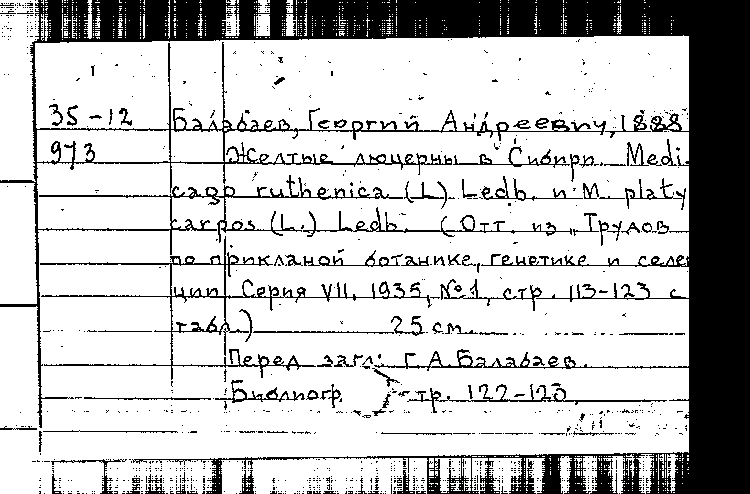 35-12 Балабаев, Георгий Андреевич, 1888
973 Желтые люцерны в Сибири. Medi-
cago ruthenica (L) Ledb. и M. platy
carpos (L.) Ledb. (Отт. из „Трудов
по прикланой ботанике, генетике и селек
ции. Серия VII. 1935, №1, стр. 113-123 с
табл.) 25 см.
Перед загл: Г.А.Балабаев.
Библиогр. стр. 122-123.